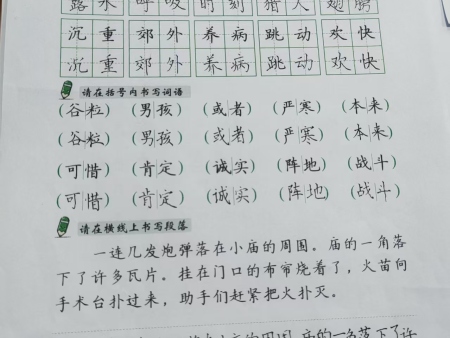 露水 呼吸 时刻 猎人 翅膀
沉重 郊外 养病 跳动 欢快
沉重 郊外 养病 跳动 欢快
请在括号内书写词语
(谷粒) (男孩) (或者) (严寒) (本来)
(谷粒) (男孩) (或者) (严寒) (本来)
(可惜) (肯定) (诚实) (阵地) (战斗)
(可惜) (肯定) (诚实) (阵地) (战斗)
请在横线上书写段落
一连几发炮弹落在小庙的周围。庙的一角落
下了许多瓦片。挂在门口的布帘烧着了，火苗向
手术台扑过来，助手们赶紧把火扑灭。
小庙的周围 庙的一角落下了许